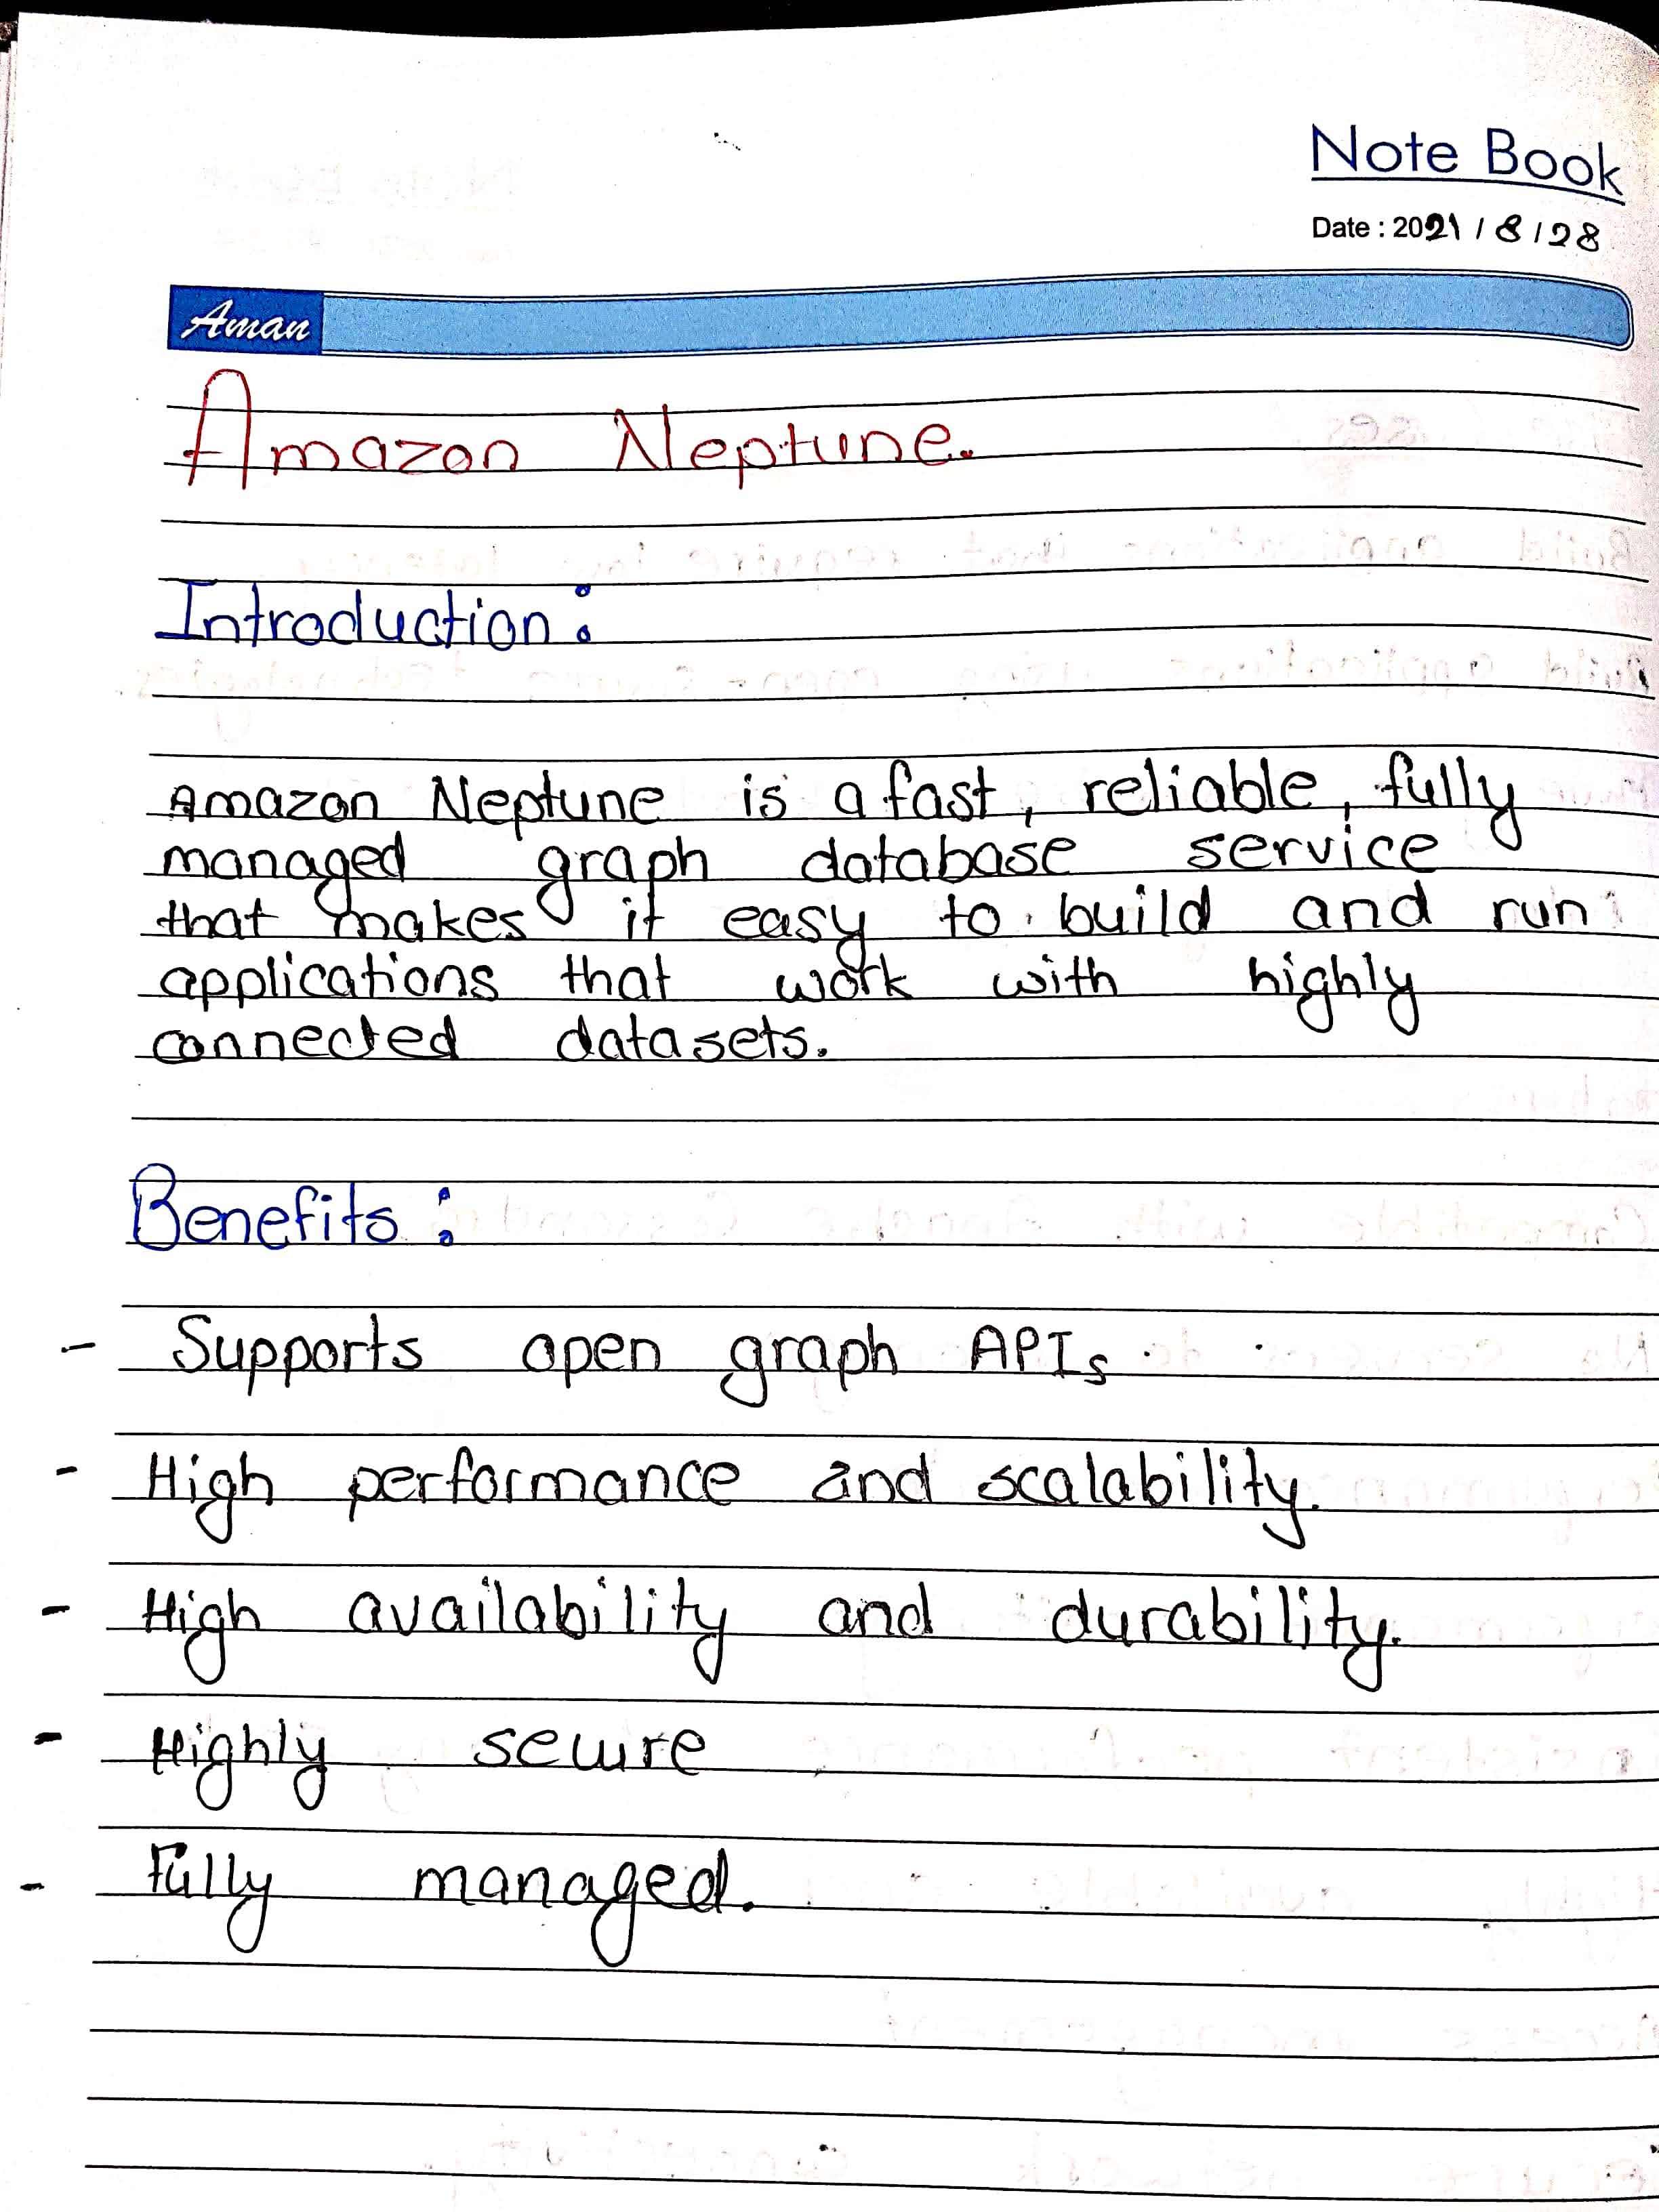 Note Book
Date : 2021 / 8 / 28
Aman
Amazon Neptune.
Introduction :
Amazon Neptune is a fast, reliable, fully
managed graph database service
that makes it easy to build and run
applications that work with highly
connected datasets.
Benefits :
- Supports open graph APIs
- High performance and scalability.
- High availability and durability.
- Highly secure
- Fully managed.